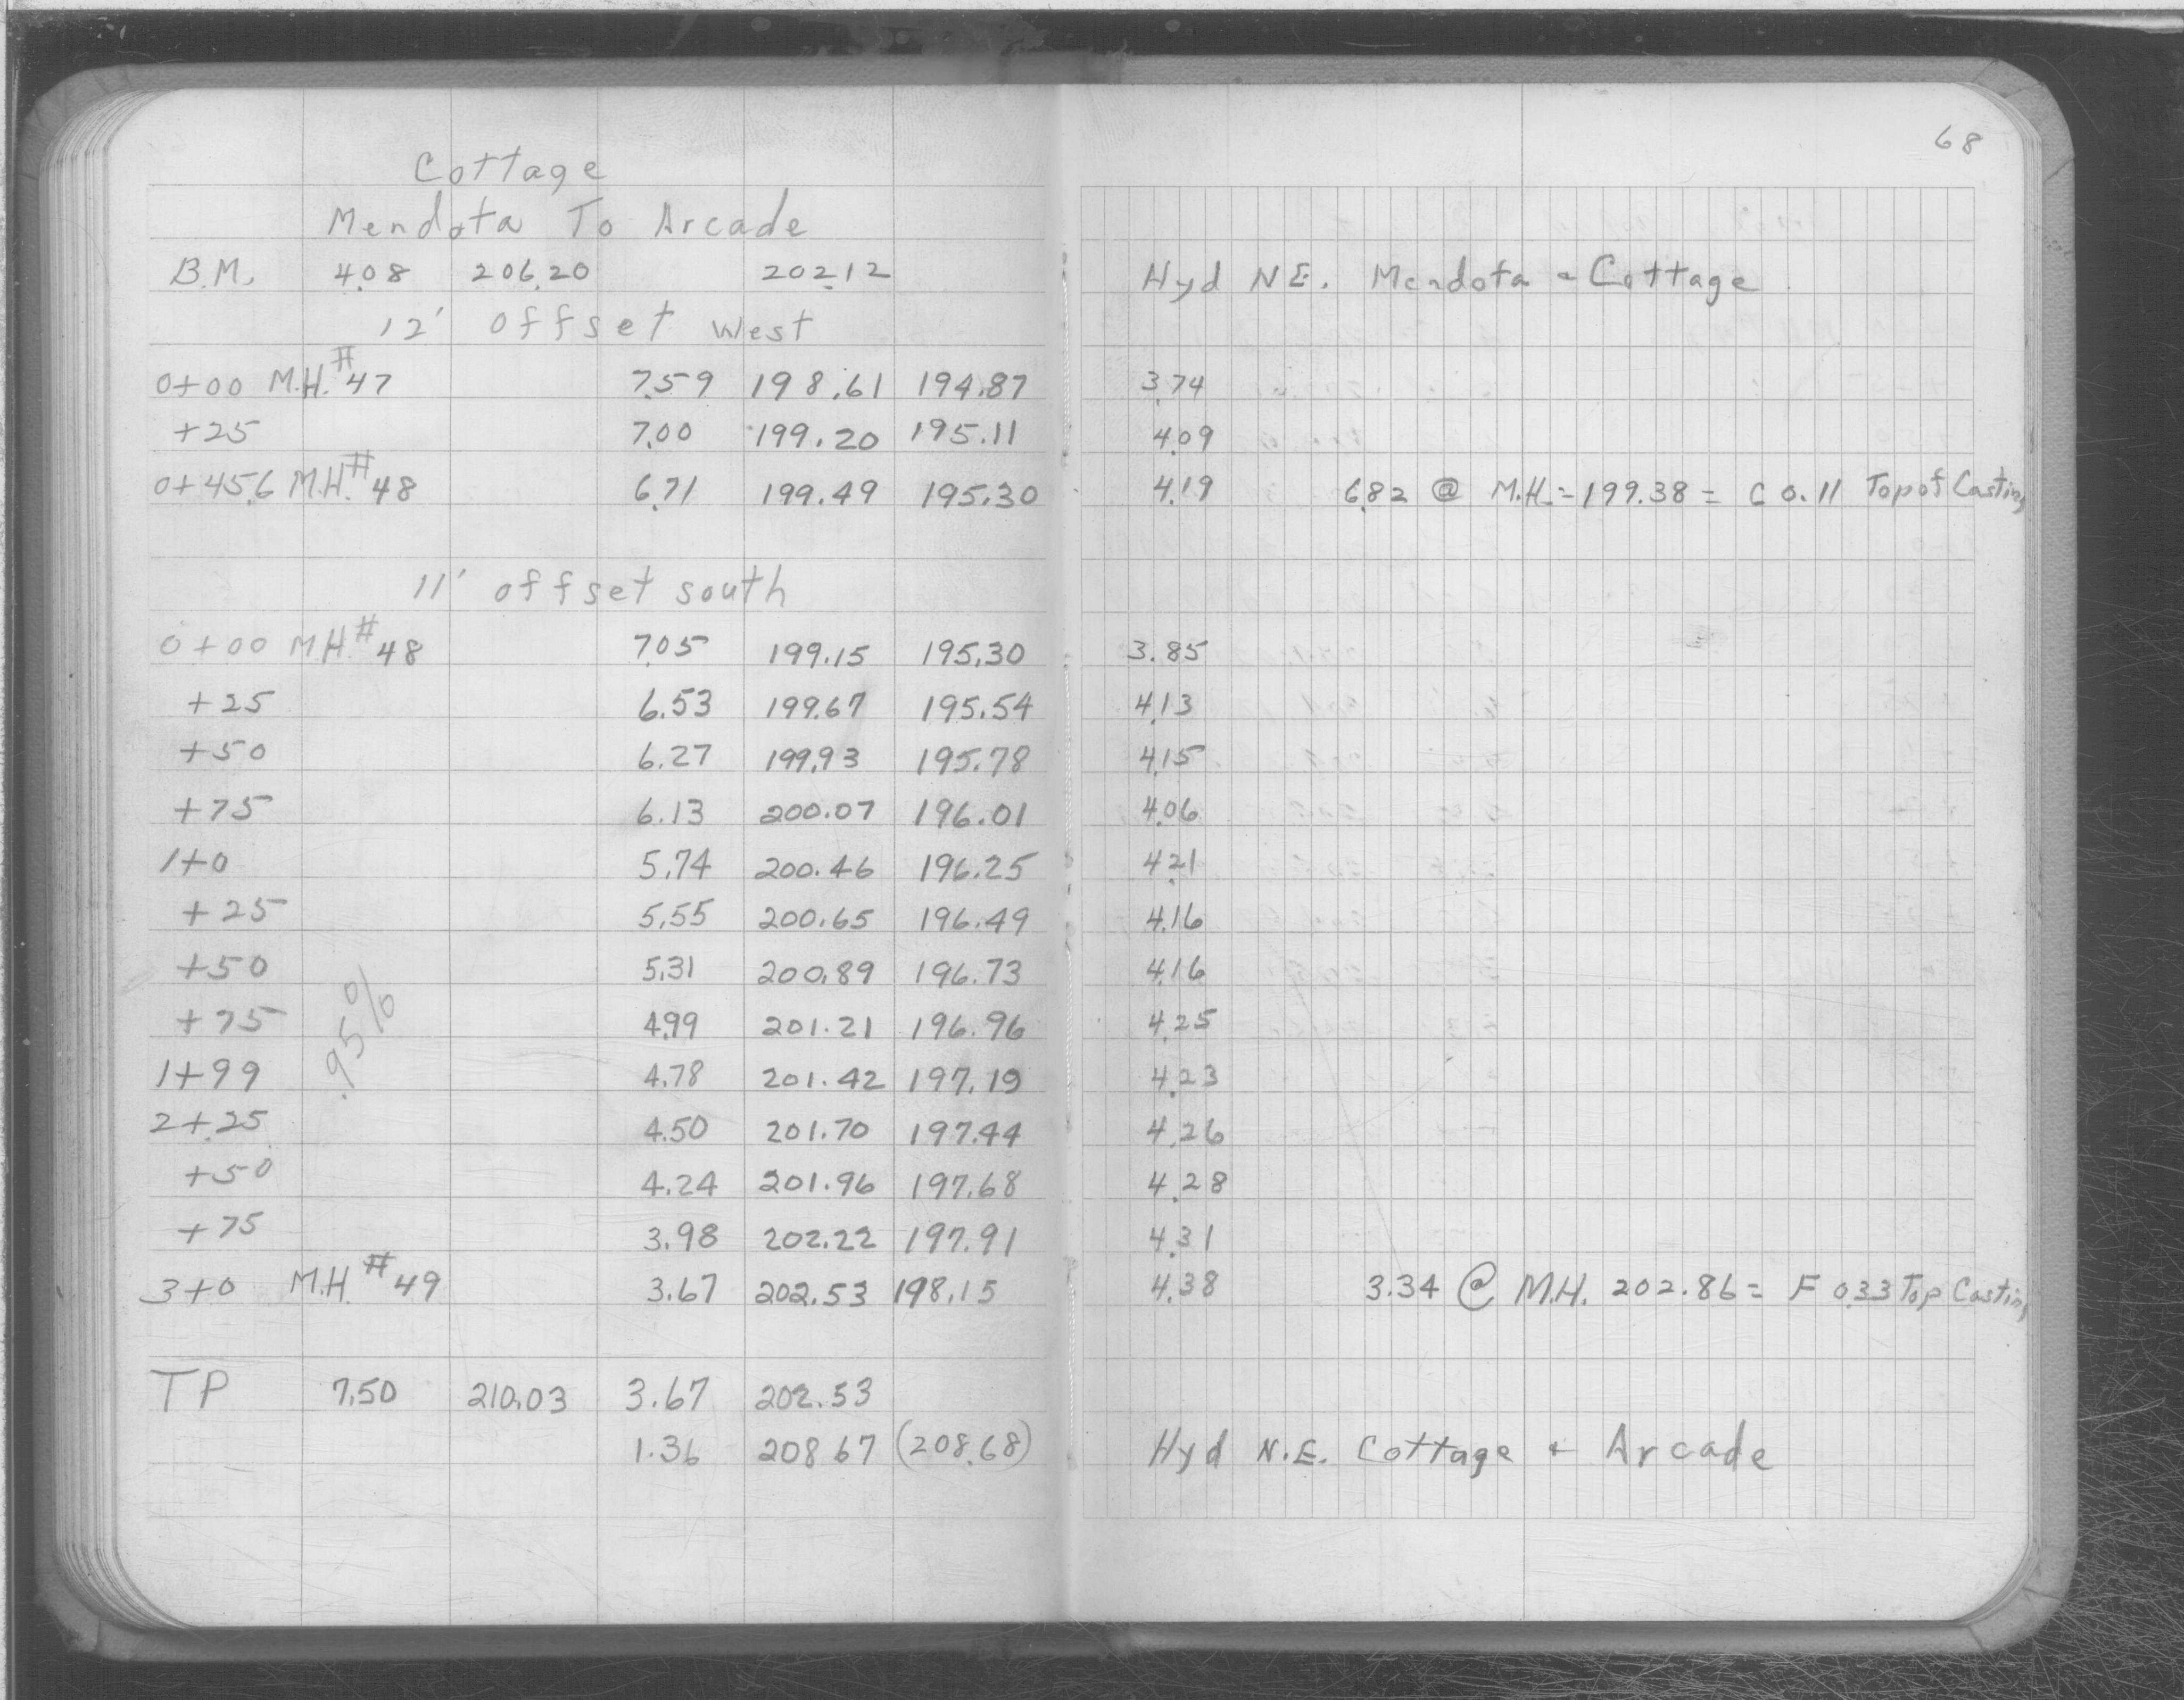 68
Cottage
Mendota To Arcade
B.M. 4.08 206.20 202.12 Hyd N.E. Mendota & Cottage
12' offset west
0+00 M.H.#47 7.59 198.61 194.87 3.74
+25 7.00 199.20 195.11 4.09
0+45.6 M.H.#48 6.71 199.49 195.30 4.19 6.82 @ M.H.=199.38= C 0.11 Top of Casting
11' offset south
0+00 M.H.#48 7.05 199.15 195.30 3.85
+25 6.53 199.67 195.54 4.13
+50 6.27 199.93 195.78 4.15
+75 6.13 200.07 196.01 4.06
1+0 5.74 200.46 196.25 4.21
+25 5.55 200.65 196.49 4.16
+50 5.31 200.89 196.73 4.16
+75 4.99 201.21 196.96 4.25
.95%
1+99 4.78 201.42 197.19 4.23
2+25 4.50 201.70 197.44 4.26
+50 4.24 201.96 197.68 4.28
+75 3.98 202.22 197.91 4.31
3+0 M.H.#49 3.67 202.53 198.15 4.38 3.34 @ M.H. 202.86= F 0.33 Top Casting
TP 7.50 210.03 3.67 202.53
1.36 208 67 (208.68) Hyd N.E. Cottage & Arcade